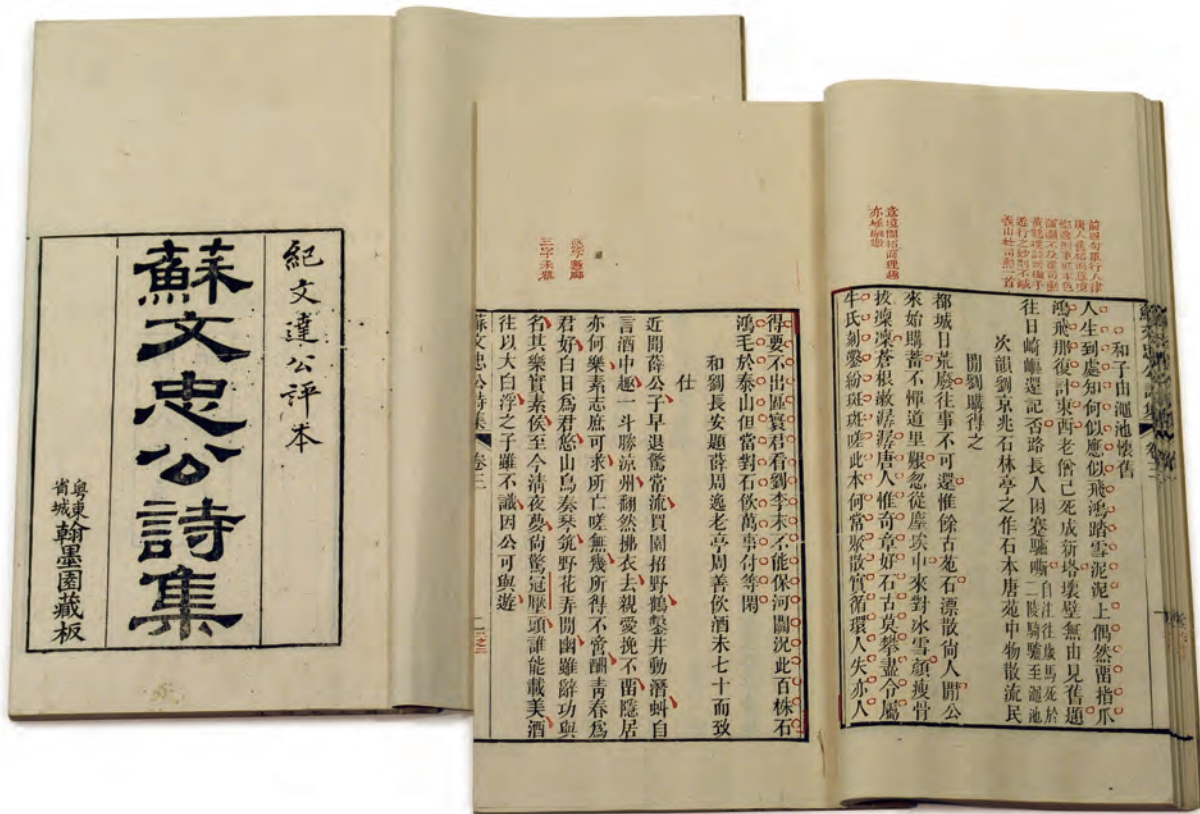 紀文達公評本
蘇文忠公詩集
粵東
省城
翰墨園藏板
前四句單行入律
唐人舊格而意境
恣逸則東坡本色
渾灝不及崔司勳
黃鶴樓詩而撒手
遊行之妙則不減
義山杜司勳一首
意境開拓而理趣
蘇文忠公詩集 卷三
和子由澠池懷舊
人生到處知何似應似飛鴻踏雪泥泥上偶然畱指爪
鴻飛那復計東西老僧已死成新塔壞壁無由見舊題
往日崎嶇還記否路長人困蹇驢嘶自注往歲馬死於
二陵騎驢至澠池
次韻劉京兆石林亭之作石本唐苑中物散流民
閒劉購得之
都城日荒廢往事不可還惟餘古苑石漂散尙人閒公
來始購蓄不憚道里艱忽從塵埃中來對冰雪顏瘦骨
拔凜凜蒼根漱潺潺唐人惟奇章好石古莫攀盡令屬
牛氏刻鑿紛斑斑嗟此本何常聚散實循環人失亦人
三字未雅
得要不出區寰君看劉李末不能保河關況此百株石
鴻毛於泰山但當對石飲萬事付等閑
和劉長安題薛周逸老亭周善飲酒未七十而致
仕
近聞薛公子早退驚常流買園招野鶴鑿井動潛虯自
言酒中趣一斗勝涼州翻然拂衣去親愛挽不畱隱居
亦何樂素志庶可求所亡嗟無幾所得不啻酬青春爲
君好白日爲君悠山鳥奏琴筑野花弄閒幽雖辭功與
名其樂實素侯至今清夜夢尙驚冠壓頭誰能載美酒
往以大白浮之子雖不識因公可與遊
蘇文忠公詩集 卷三